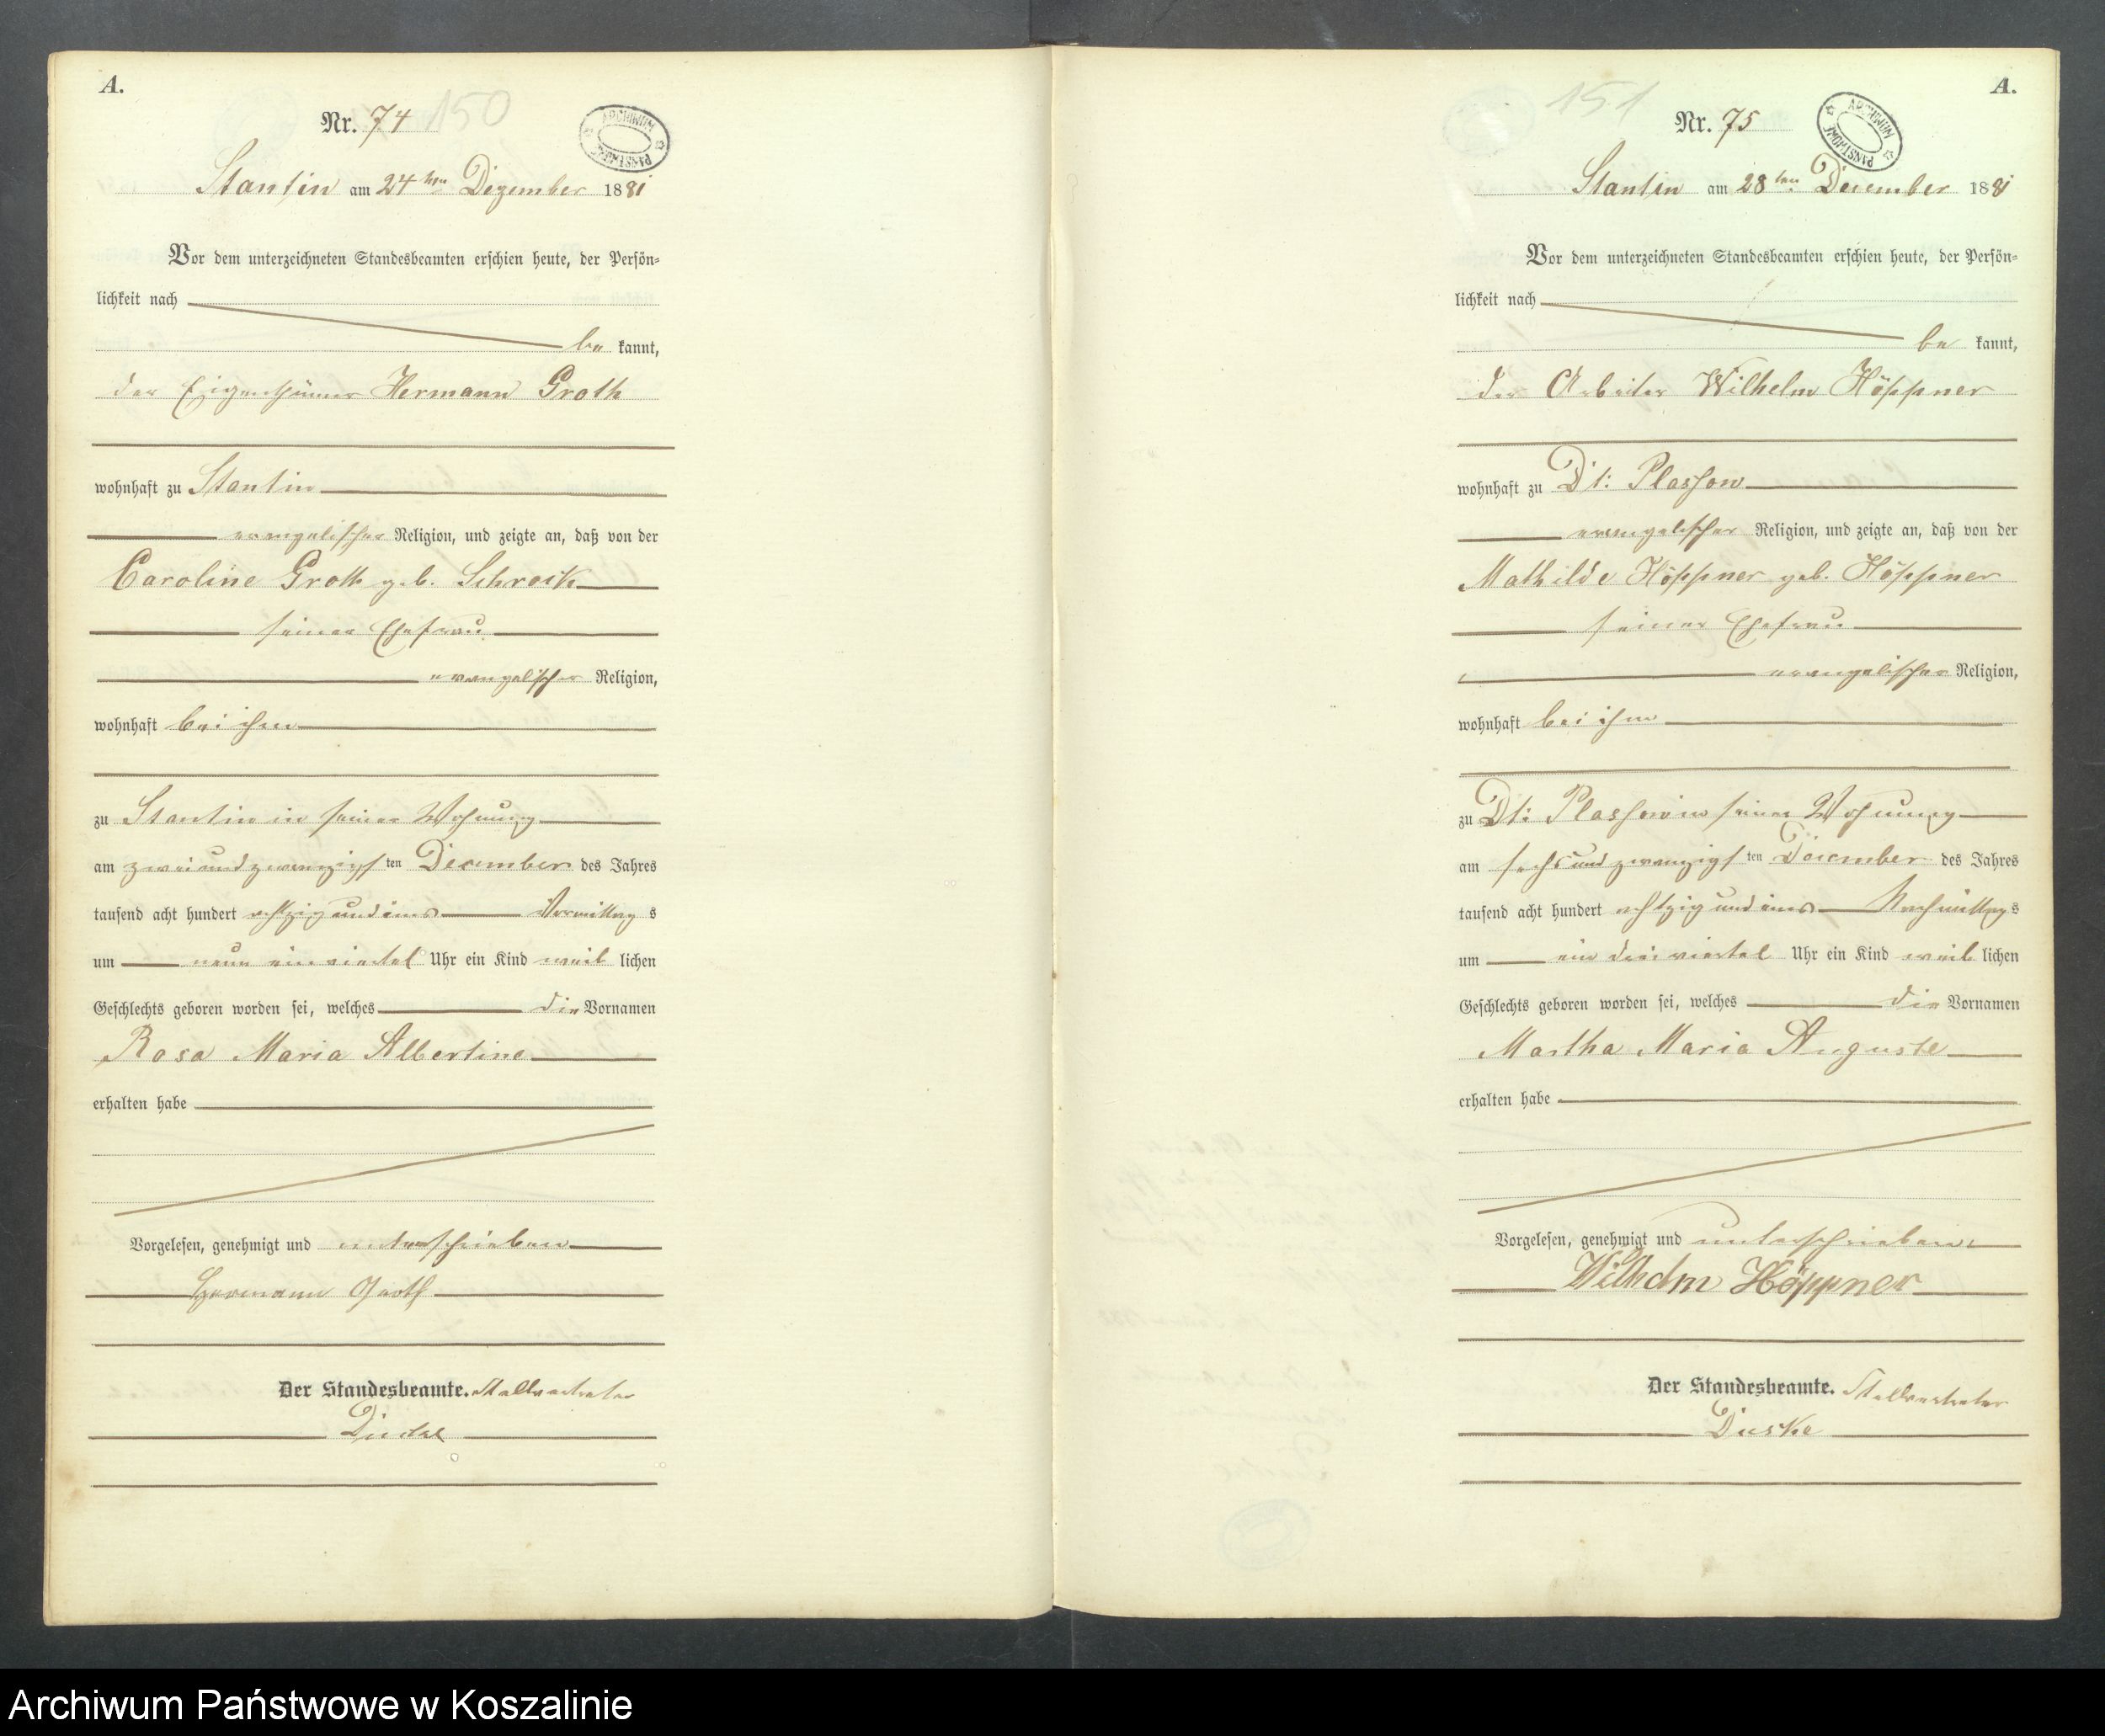 A.
Nr. 74 150
ARCHIWUM PAŃSTWOWE
Stantin am 24ten Dezember 1881
Vor dem unterzeichneten Standesbeamten erschien heute, der Persön=
lichkeit nach
be kannt,
der Eigenthümer Hermann Groth
wohnhaft zu Stantin
evangelischer Religion, und zeigte an, daß von der
Caroline Groth geb. Schrock
seiner Ehefrau
evangelischer Religion,
wohnhaft bei ihm
zu Stantin in seiner Wohnung
am zweiundzwanzigsten December des Jahres
tausend acht hundert achtzig und eins Vormittags
um neun ein viertel Uhr ein Kind weiblichen
Geschlechts geboren worden sei, welches die Vornamen
Rosa Maria Albertine
erhalten habe
Vorgelesen, genehmigt und unterschrieben
Hermann Groth
Der Standesbeamte. Stellvertreter
A.
151
Nr. 75
ARCHIWUM PAŃSTWOWE
Stantin am 28ten December 1881
Vor dem unterzeichneten Standesbeamten erschien heute, der Persön=
lichkeit nach
be kannt,
der Arbeiter Wilhelm Höppner
wohnhaft zu Dt: Plassow
evangelischer Religion, und zeigte an, daß von der
Mathilde Höppner geb. Höppner
seiner Ehefrau
evangelischer Religion,
wohnhaft bei ihm
zu Dt: Plassow in seiner Wohnung
am sechsundzwanzigsten December des Jahres
tausend acht hundert achtzig und eins Nachmittags
um ein drei viertel Uhr ein Kind weiblichen
Geschlechts geboren worden sei, welches die Vornamen
Martha Maria Auguste
erhalten habe
Vorgelesen, genehmigt und unterschrieben
Wilhelm Höppner
Der Standesbeamte. Stellvertreter
Archiwum Państwowe w Koszalinie